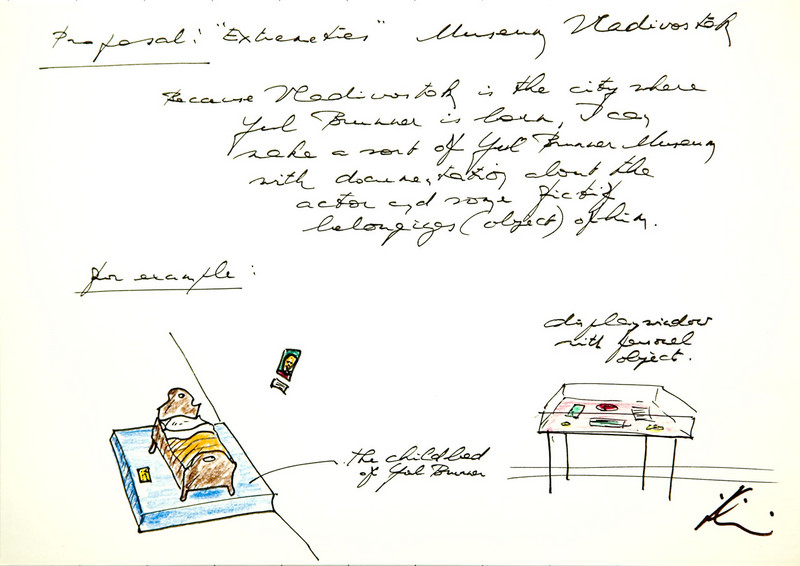 Proposal: "Extremeties" Museum Vladivostok
Because Vladivostok is the city where
Yul Brunner is born, I can
make a sort of Yul Brunner Museum
with documentation about the
actor and some fictif
belongiges (object) of him.
for example:
display window
with personel
object.
the child bed
of Yul Brunner